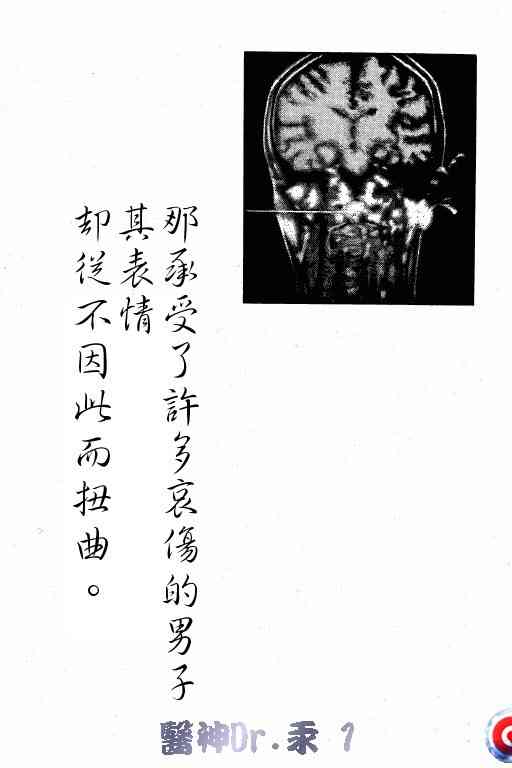 那承受了許多哀傷的男子
其表情
却從不因此而扭曲。
醫神Dr.汞 1